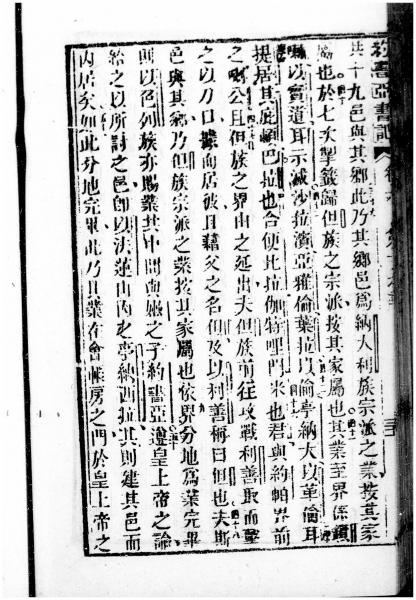 約書亞書記
共十九邑與其鄉此乃其鄉邑爲納大利族宗派之業按其家
屬也於七次掣籤歸但族之宗派按其家屬也其業至界係
以實道耳示滅沙拉濱亞雅倫葉拉以倫亭納大以革倫耳
提居其庇嶼巴拉也合便比拉伽特哩門米也君與約帕界前
之公且但族之界由之延出夫但族前往攻戰利善取而擊
之以刀口據而居彼且藉父之名但及以利善稱曰但也夫斯
邑與其鄉乃但族宗派之業按其家屬也依界分地爲業完畢
則以色列族亦賜業其中間與嫩之子約書亞遵皇上帝之諭
給之以所討之邑即以法蓮山內之亭納西拉其則建其邑而
內居矣如此分地完畢此乃其業在會帳房之門於皇上帝之